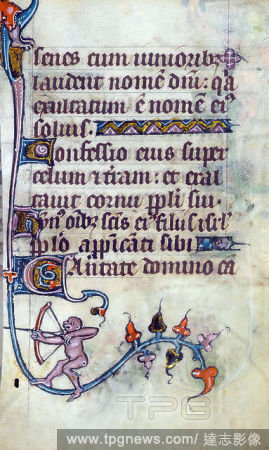 senes cum iunioribꝫ
laudent nomē dñi: qͣ
exaltatum ē nomē eiꝰ
solius.
Confessio eius super
celum ⁊ t̄ram: et exal
tauit cornu ppl̄i sui.
Hȳnꝰ oībꝫ sc̄is eiꝰ filiis isrl̄
pp̄lo appiᷓnti sibi
Cantate domino cā
TPG
www.tpgnews.com/達志影像